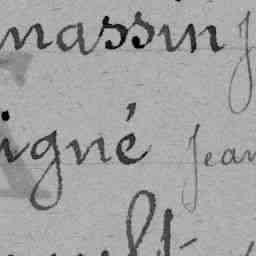 massin J
igné Jean